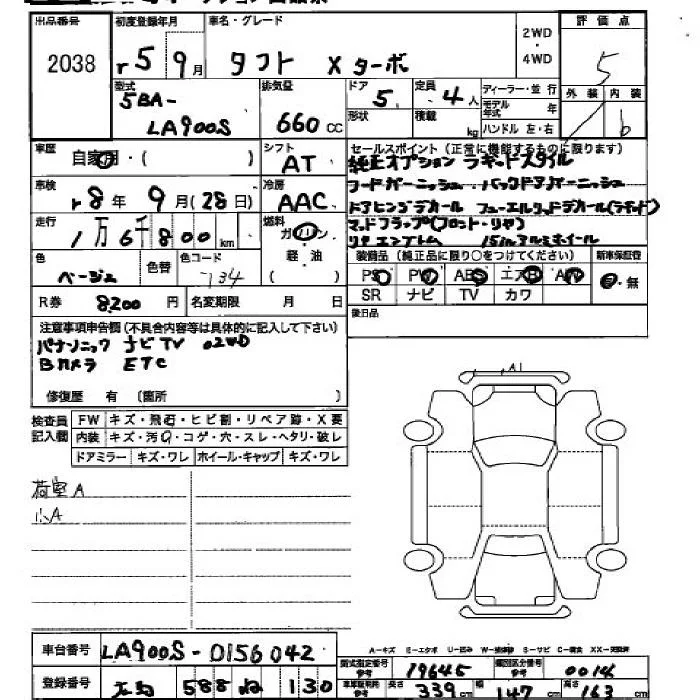 出品番号 初度登録年月 車名・グレード 2WD・4WD 評価点
2038 r5 9月 タフト Xターボ 5
型式 排気量 ドア 定員 ディーラー・並行 外装 内装
5BA- 5 4人 モデル年式 年 b
LA900S 660CC 形状 積載 kg ハンドル 左・右
車歴 自家用・( ) シフト AT セールスポイント(正常に機能するものに限ります)
純正オプション ラギッドスタイル
車検 r8年 9月(28日) 冷房 AAC フードガーニッシュ バックドアガーニッシュ
ドアヒンジデカール フューエルリッドデカール(ラギッド)
走行 1万6千800km 燃料 ガソリン マッドフラップ(フロント・リヤ)
軽油 リヤエンブレム 15inアルミホイール
色 ベージュ 色替 色コード ( ) 装備品(純正品に限り○をつけてください) 新車保証書
PS PW ABS エアB AW 有・無
R券 8,200円 名変期限 月 日 SR ナビ TV カワ
注意事項申告欄(不具合内容等は具体的に記入して下さい) 後日品
パナソニック ナビTV
Bカメラ ETC
修復歴 有 (箇所 A1
検査員記入欄 FW キズ・飛石・ヒビ割・リペア跡・X要
内装 キズ・汚れ・コゲ・穴・スレ・ヘタリ・破レ
ドアミラー キズ・ワレ ホイール・キャップ キズ・ワレ
荷室A
小A
A-キズ E-エクボ U-凹み W-補修跡 S-サビ C-腐食 XX-交換済
車台番号 LA900S-0156042 型式指定番号 19645 類別区分番号 0014
登録番号 588 ぬ 130 長さ 339cm 幅 147cm 高さ 163cm